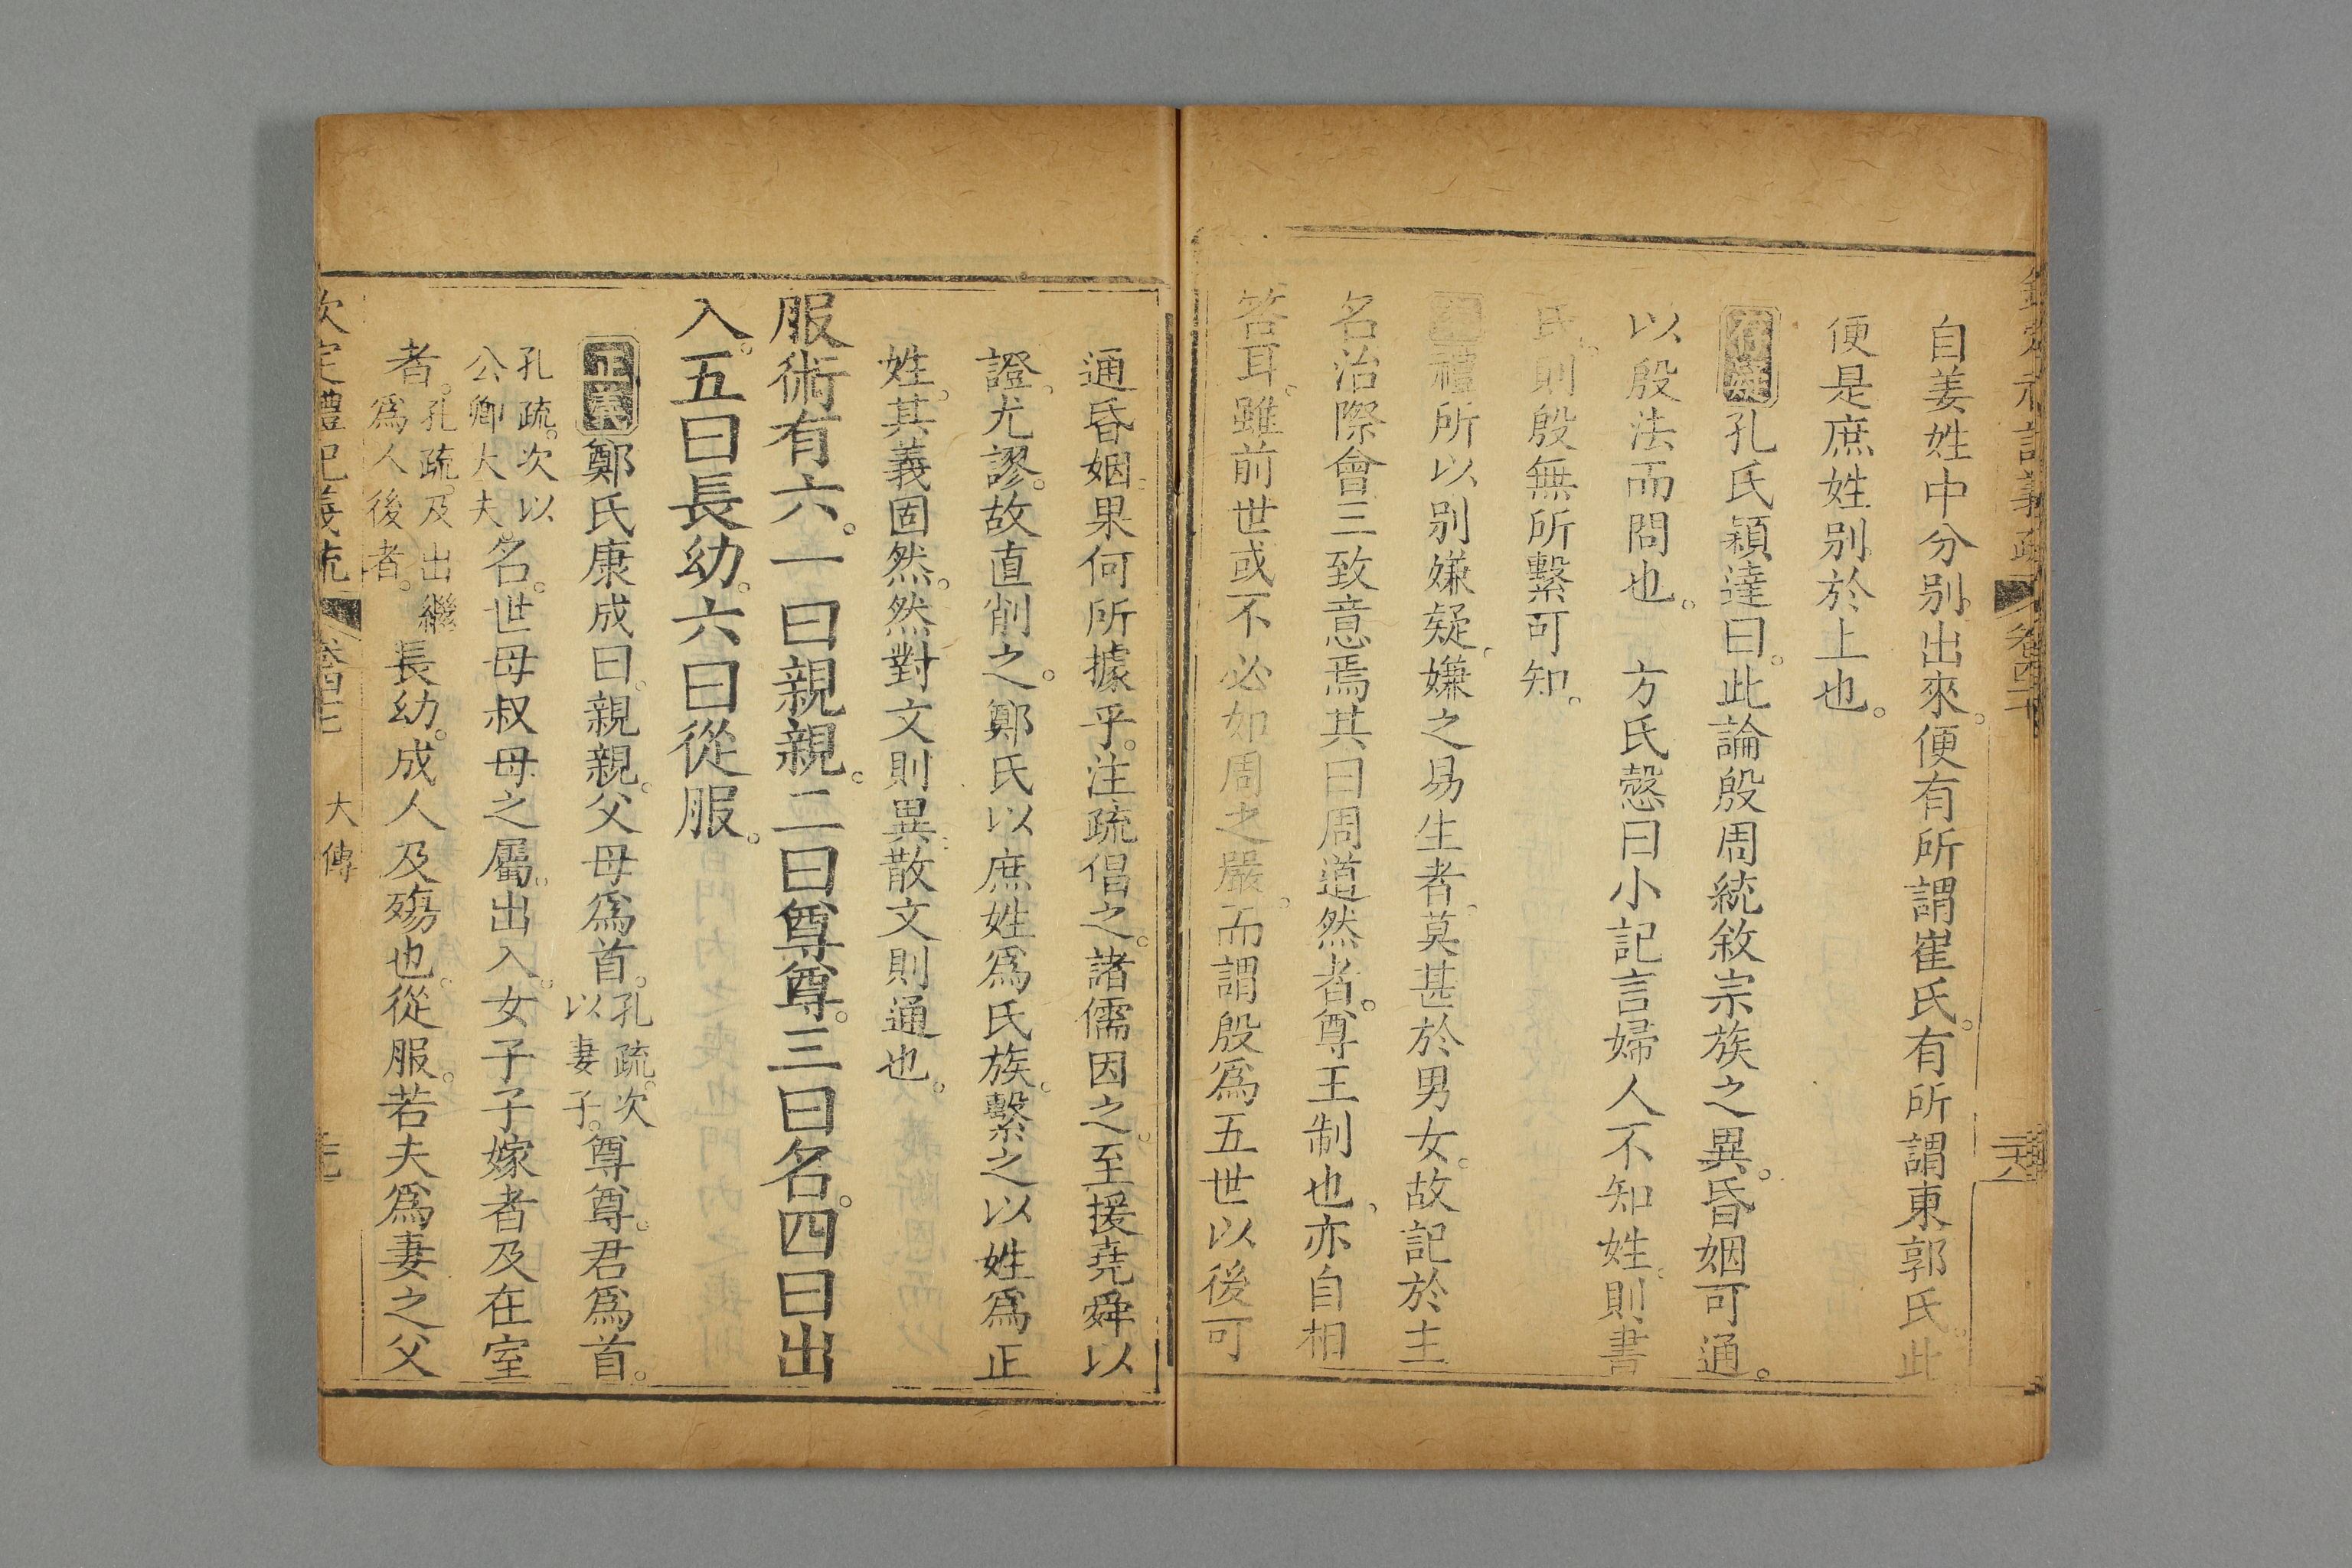 自姜姓中分别出來。便有所謂崔氏。有所謂東郭氏。此
便是庶姓别於上也。
存疑孔氏穎達曰。此論殷周統敘宗族之異。昏姻可通。
以殷法而問也。 方氏慤曰小記言婦人不知姓。則書
氏。則殷無所繫可知。
禮所以别嫌疑。嫌之易生者。莫甚於男女。故記於主
名治際會三致意焉其曰周道然者。尊王制也。亦自相
答耳。雖前世或不必如周之嚴。而謂殷爲五世以後可
通昏姻。果何所據乎。注疏倡之。諸儒因之。至援堯舜以
證。尤謬。故直削之。鄭氏以庶姓爲氏族。繫之以姓爲正
姓。其義固然。然對文則異。散文則通也。
服術有六。一曰親親。二曰尊尊。三曰名。四曰出
入。五曰長幼。六曰從服。
正義鄭氏康成曰。親親。父母爲首。孔疏。次以妻子。尊尊。君爲首。
孔疏。次以公卿大夫。名。世母叔母之屬。出入。女子子嫁者及在室
者。孔疏。及出繼爲人後者。長幼。成人及殤也。從服。若夫爲妻之父
大傳